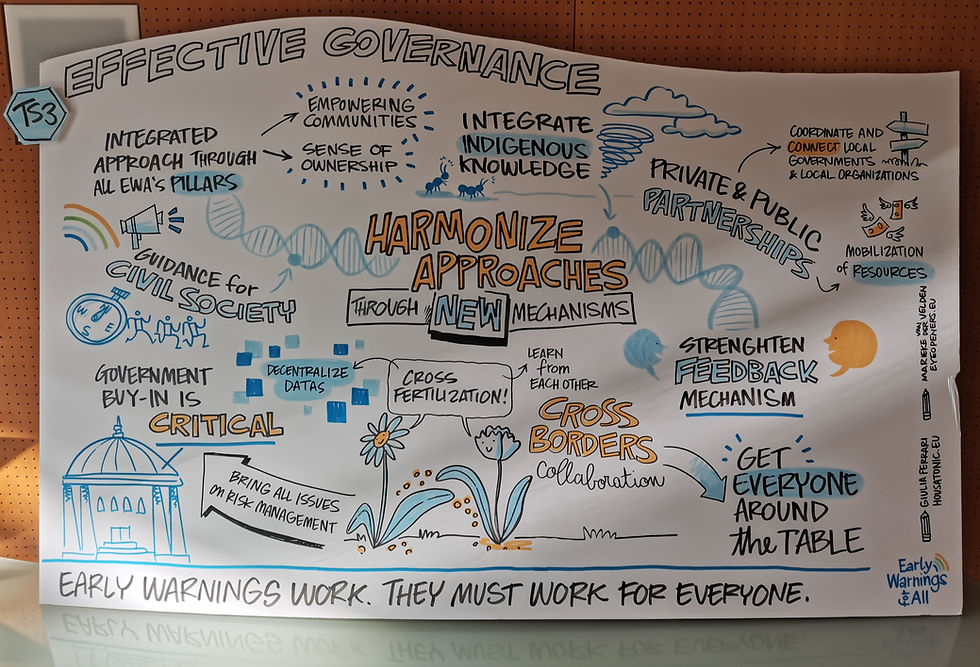 EFFECTIVE GOVERNANCE
TS3
INTEGRATED
APPROACH THROUGH
ALL EWA'S PILLARS
EMPOWERING
COMMUNITIES
SENSE OF
OWNERSHIP
INTEGRATE
INDIGENOUS
KNOWLEDGE
PRIVATE & PUBLIC
PARTNERSHIPS
COORDINATE AND
CONNECT LOCAL
GOVERNMENTS
& LOCAL ORGANIZATIONS
MOBILIZATION
of RESOURCES
HARMONIZE
APPROACHES
THROUGH NEW MECHANISMS
GUIDANCE for
CIVIL SOCIETY
N
W
S
E
GOVERNMENT
BUY-IN IS
CRITICAL
DECENTRALIZE
DATAS
CROSS
FERTILIZATION!
LEARN
from
EACH OTHER
STRENGHTEN
FEEDBACK
MECHANISM
CROSS
BORDERS
collaboration
BRING ALL ISSUES
on RISK MANAGEMENT
GET
EVERYONE
AROUND
the TABLE
MARIEKE VAN DER VELDEN
EYEOPENERS.EU
GIULIA FERRARI
HOUSATONIC.EU
EARLY WARNINGS WORK. THEY MUST WORK FOR EVERYONE.
Early
Warnings
for All